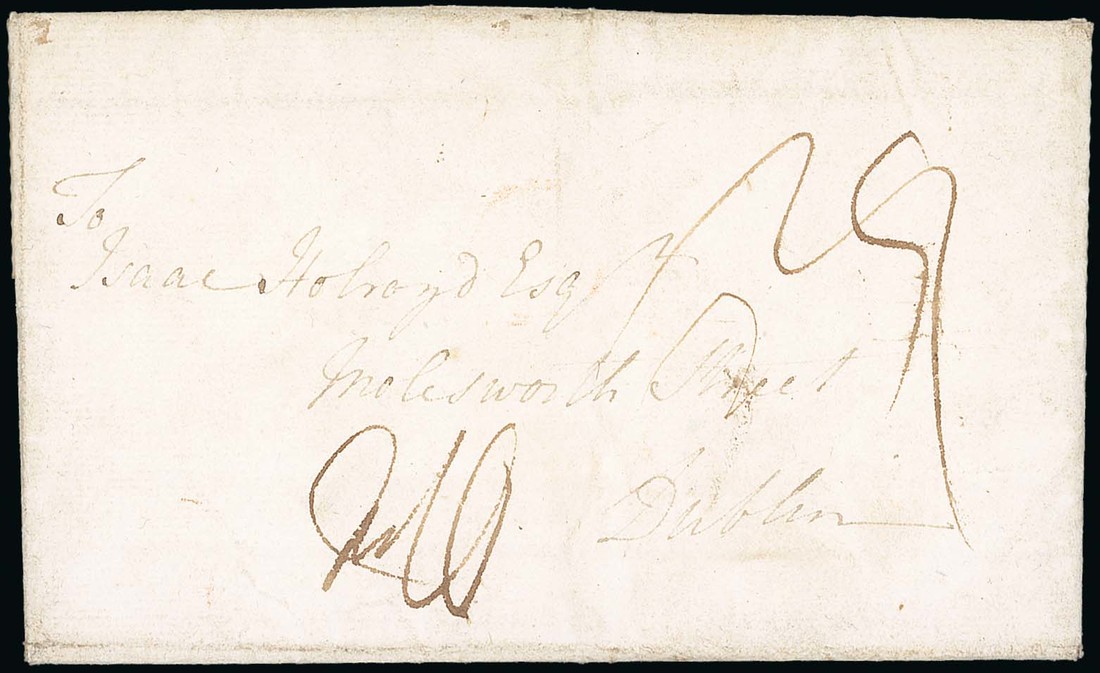 To
Isaac Holroyd Esqr
Molesworth Street
Dublin